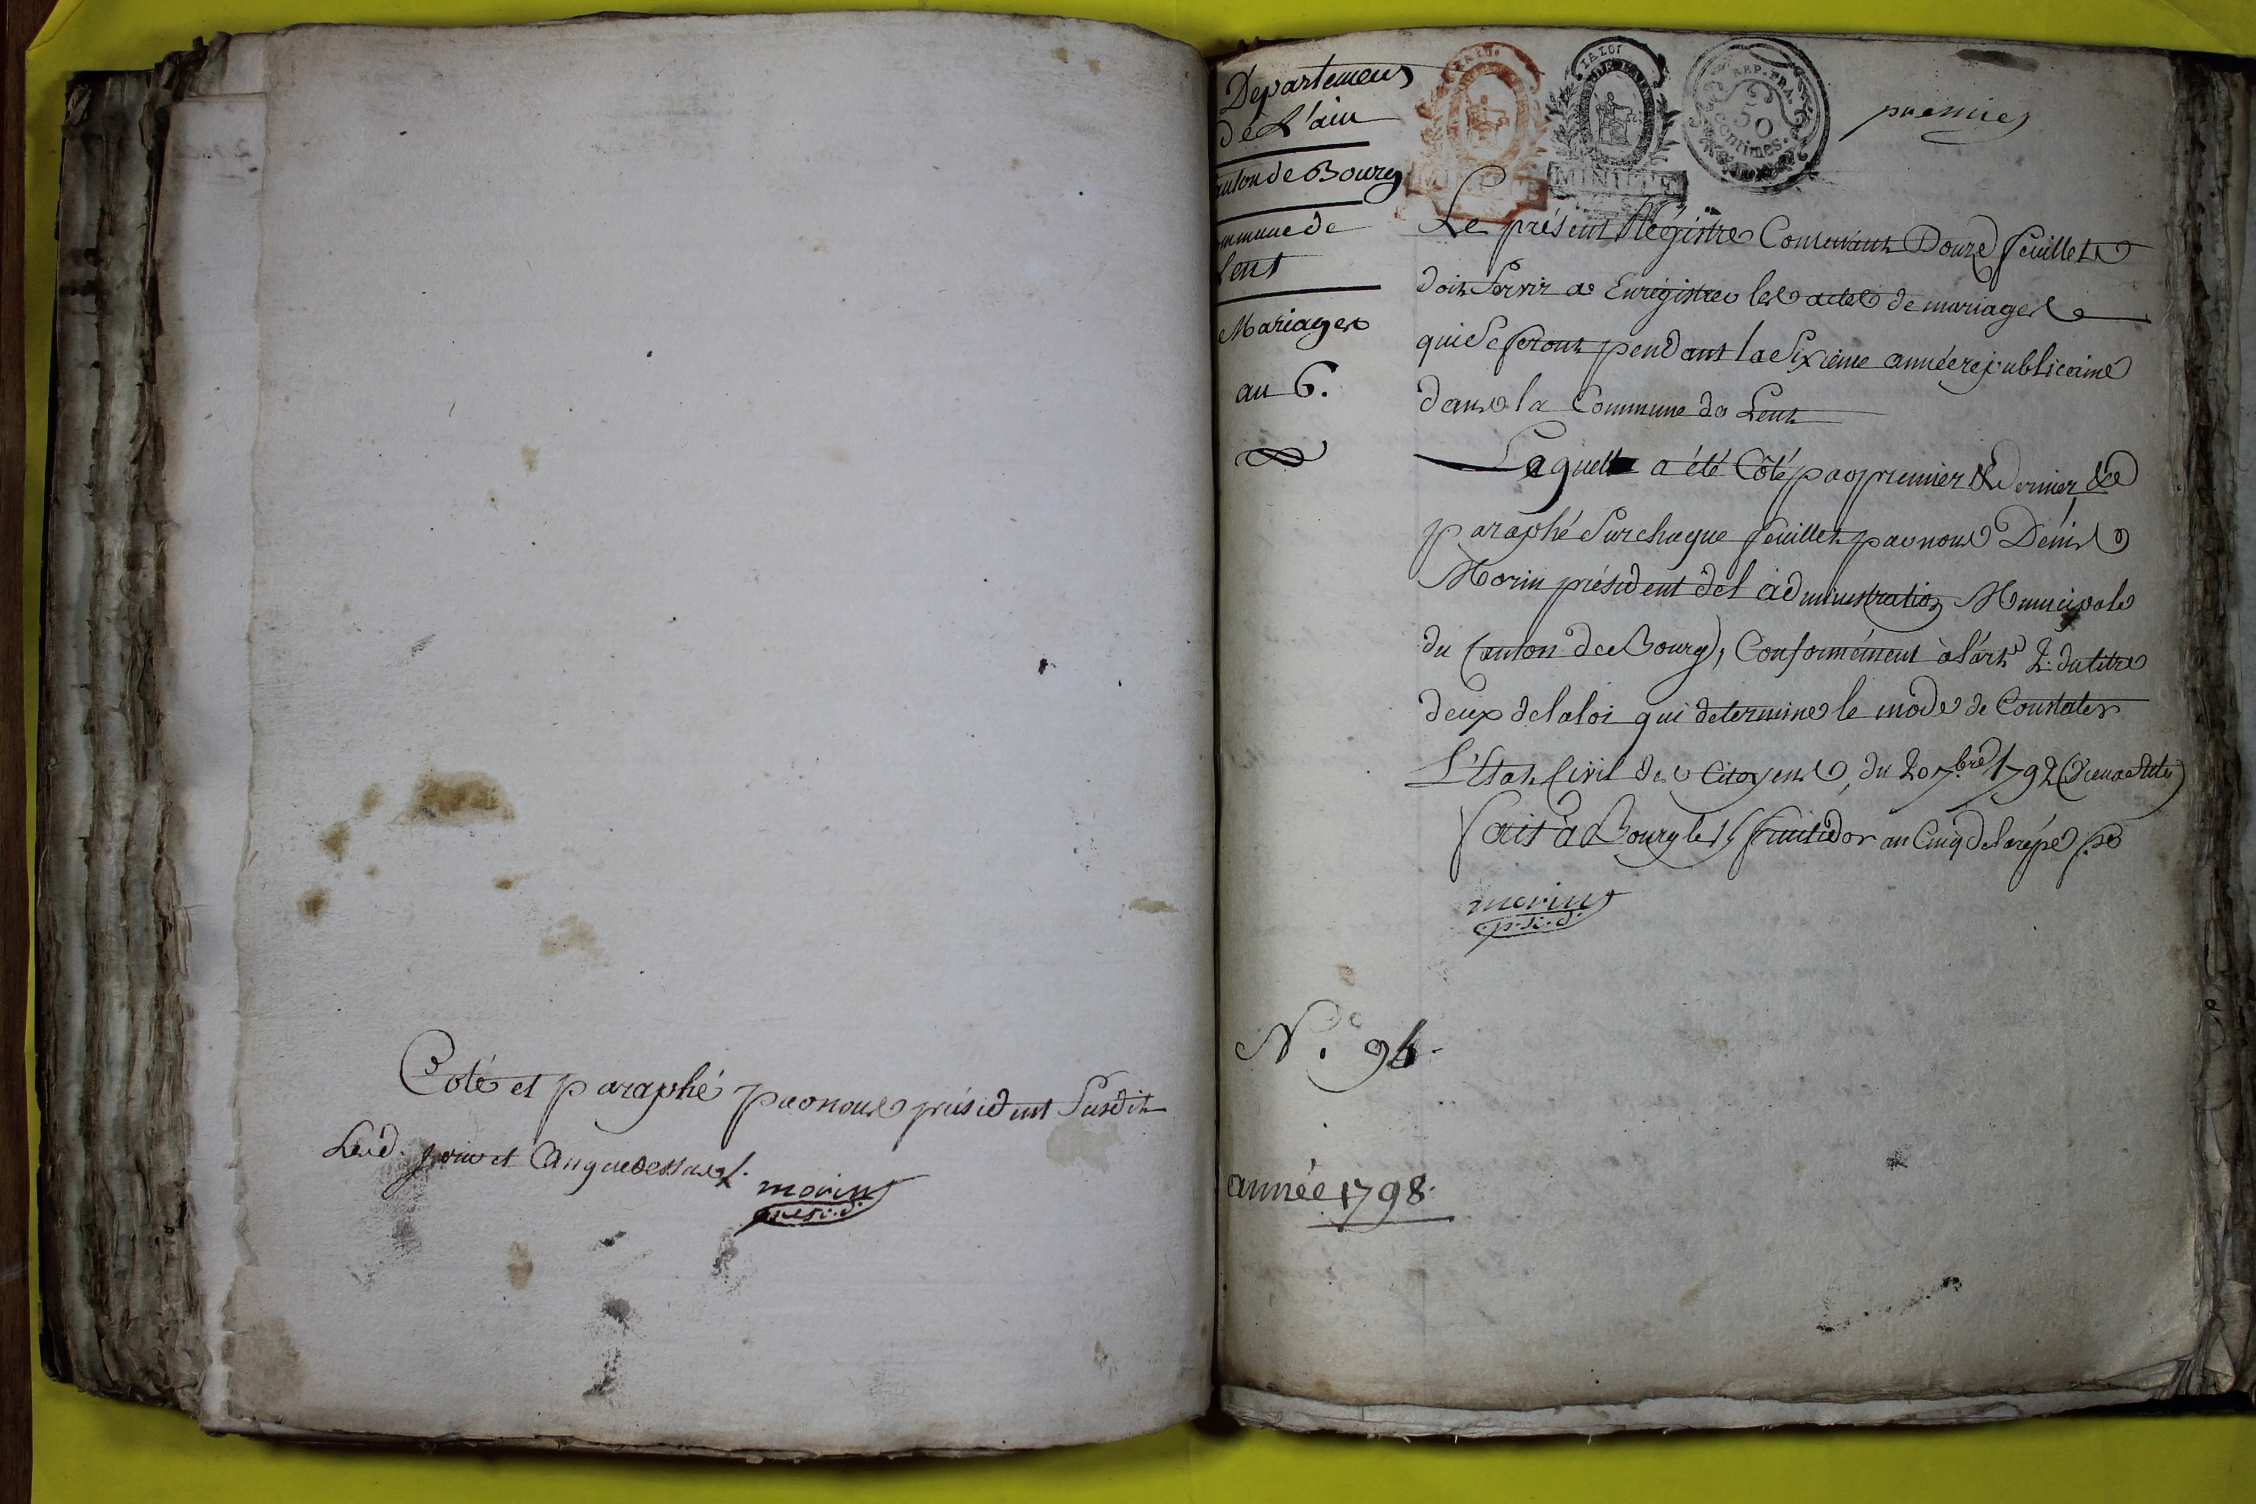 Coté et paraphé par nous président susdit
Les d. jour et an que dessus /.
morin
presid.
Departement
de L'ain
anton de Bourg
ommune de
Lent
Mariages
an 6.
LA LOI
MINUTE
REP. FRA.
50
centimes.
premier
Le présent Régistre Contenant Douze feuillets
doit Servir a Enrégistrer les actes de mariages
qui se feront pendant la Sixième année républicaine
dans la Commune de Lent
Laquelle a été Côté par premier & dernier, &
paraphé Sur chaque feuillet par nous Dénis
Morin président de l'administration Municipale
du Canton de Bourg, Conformément à l'art. 2. du titre
deux de la loi qui determine le mode de Constater
L'Etat Civil des Citoyens, du 20 7.bre 1792 (vieux stile)
fait à Bourg le 15 fructidor an Cinq de la rép.e f.se
morin
p.si.d.
N.o 94.
année 1798.